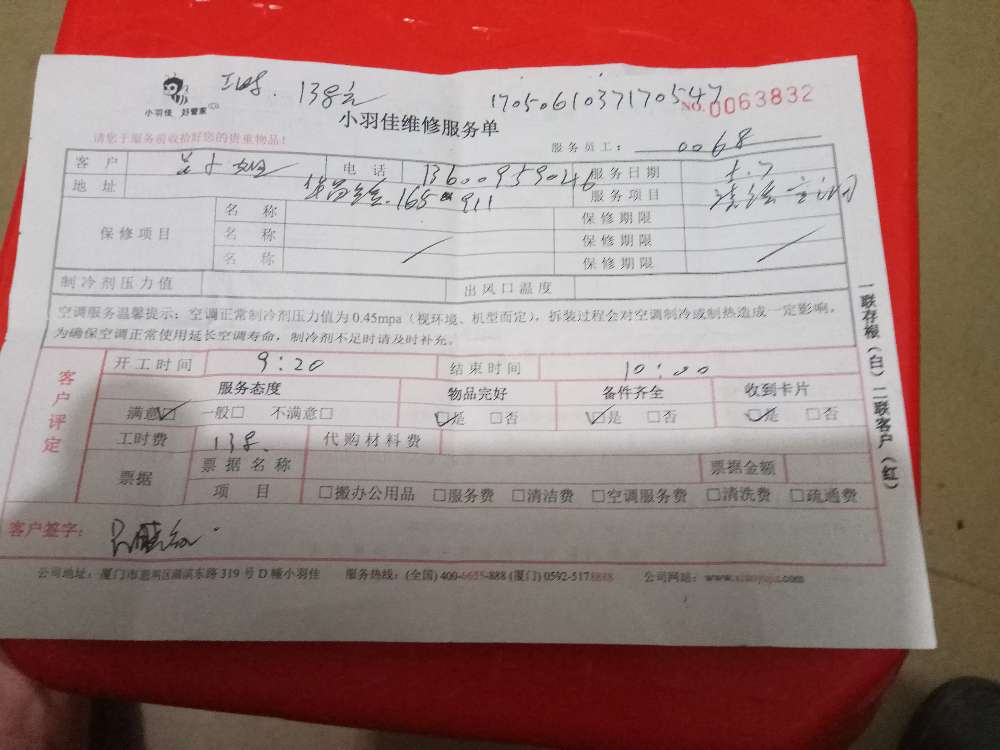 138元 1705061037170547
小羽佳 好管家 NO.0063832
小羽佳维修服务单
请您于服务前收拾好您的贵重物品！ 服务员工： 0068
客户 电话 13600959046 服务日期 5.7
地址 165 911 服务项目 清洗空调
保修项目 名称 保修期限
名称 保修期限
名称 保修期限
制冷剂压力值 出风口温度
空调服务温馨提示：空调正常制冷剂压力值为0.45mpa（视环境、机型而定），拆装过程会对空调制冷或制热造成一定影响。
为确保空调正常使用延长空调寿命，制冷剂不足时请及时补充。
客户评定 开工时间 9:20 结束时间 10:00
服务态度 物品完好 备件齐全 收到卡片
满意☑ 一般□ 不满意□ ☑是 □否 ☑是 □否 ☑是 □否
工时费 138. 代购材料费
票据 票据名称 票据金额
项目 □搬办公用品 □服务费 □清洁费 □空调服务费 □清洗费 □疏通费
客户签字：
公司地址：厦门市思明区湖滨东路319号D幢小羽佳 服务热线：(全国) 400-6655-888 (厦门) 0592-5178888 公司网站：www.xiaoyujia.com
一联存根（白）二联客户（红）